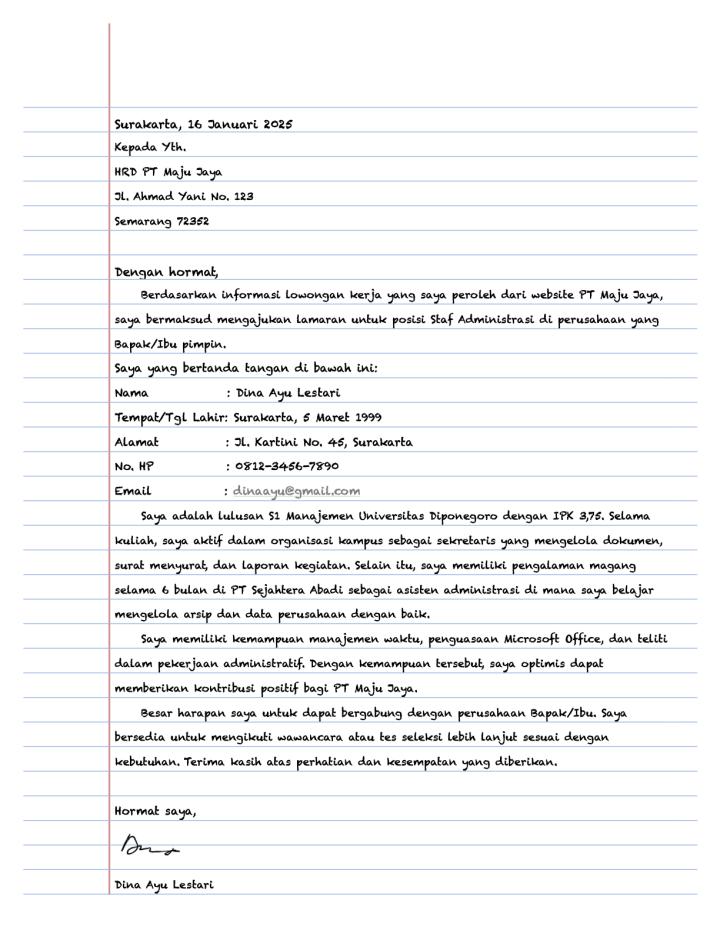 Surakarta, 16 Januari 2025
Kepada Yth.
HRD PT Maju Jaya
Jl. Ahmad Yani No. 123
Semarang 72352
Dengan hormat,
Berdasarkan informasi lowongan kerja yang saya peroleh dari website PT Maju Jaya,
saya bermaksud mengajukan lamaran untuk posisi Staf Administrasi di perusahaan yang
Bapak/Ibu pimpin.
Saya yang bertanda tangan di bawah ini:
Nama : Dina Ayu Lestari
Tempat/Tgl Lahir: Surakarta, 5 Maret 1999
Alamat : Jl. Kartini No. 45, Surakarta
No. HP : 0812-3456-7890
Email : dinaayu@gmail.com
Saya adalah lulusan S1 Manajemen Universitas Diponegoro dengan IPK 3,75. Selama
kuliah, saya aktif dalam organisasi kampus sebagai sekretaris yang mengelola dokumen,
surat menyurat, dan laporan kegiatan. Selain itu, saya memiliki pengalaman magang
selama 6 bulan di PT Sejahtera Abadi sebagai asisten administrasi di mana saya belajar
mengelola arsip dan data perusahaan dengan baik.
Saya memiliki kemampuan manajemen waktu, penguasaan Microsoft Office, dan teliti
dalam pekerjaan administratif. Dengan kemampuan tersebut, saya optimis dapat
memberikan kontribusi positif bagi PT Maju Jaya.
Besar harapan saya untuk dapat bergabung dengan perusahaan Bapak/Ibu. Saya
bersedia untuk mengikuti wawancara atau tes seleksi lebih lanjut sesuai dengan
kebutuhan. Terima kasih atas perhatian dan kesempatan yang diberikan.
Hormat saya,
Dina Ayu Lestari